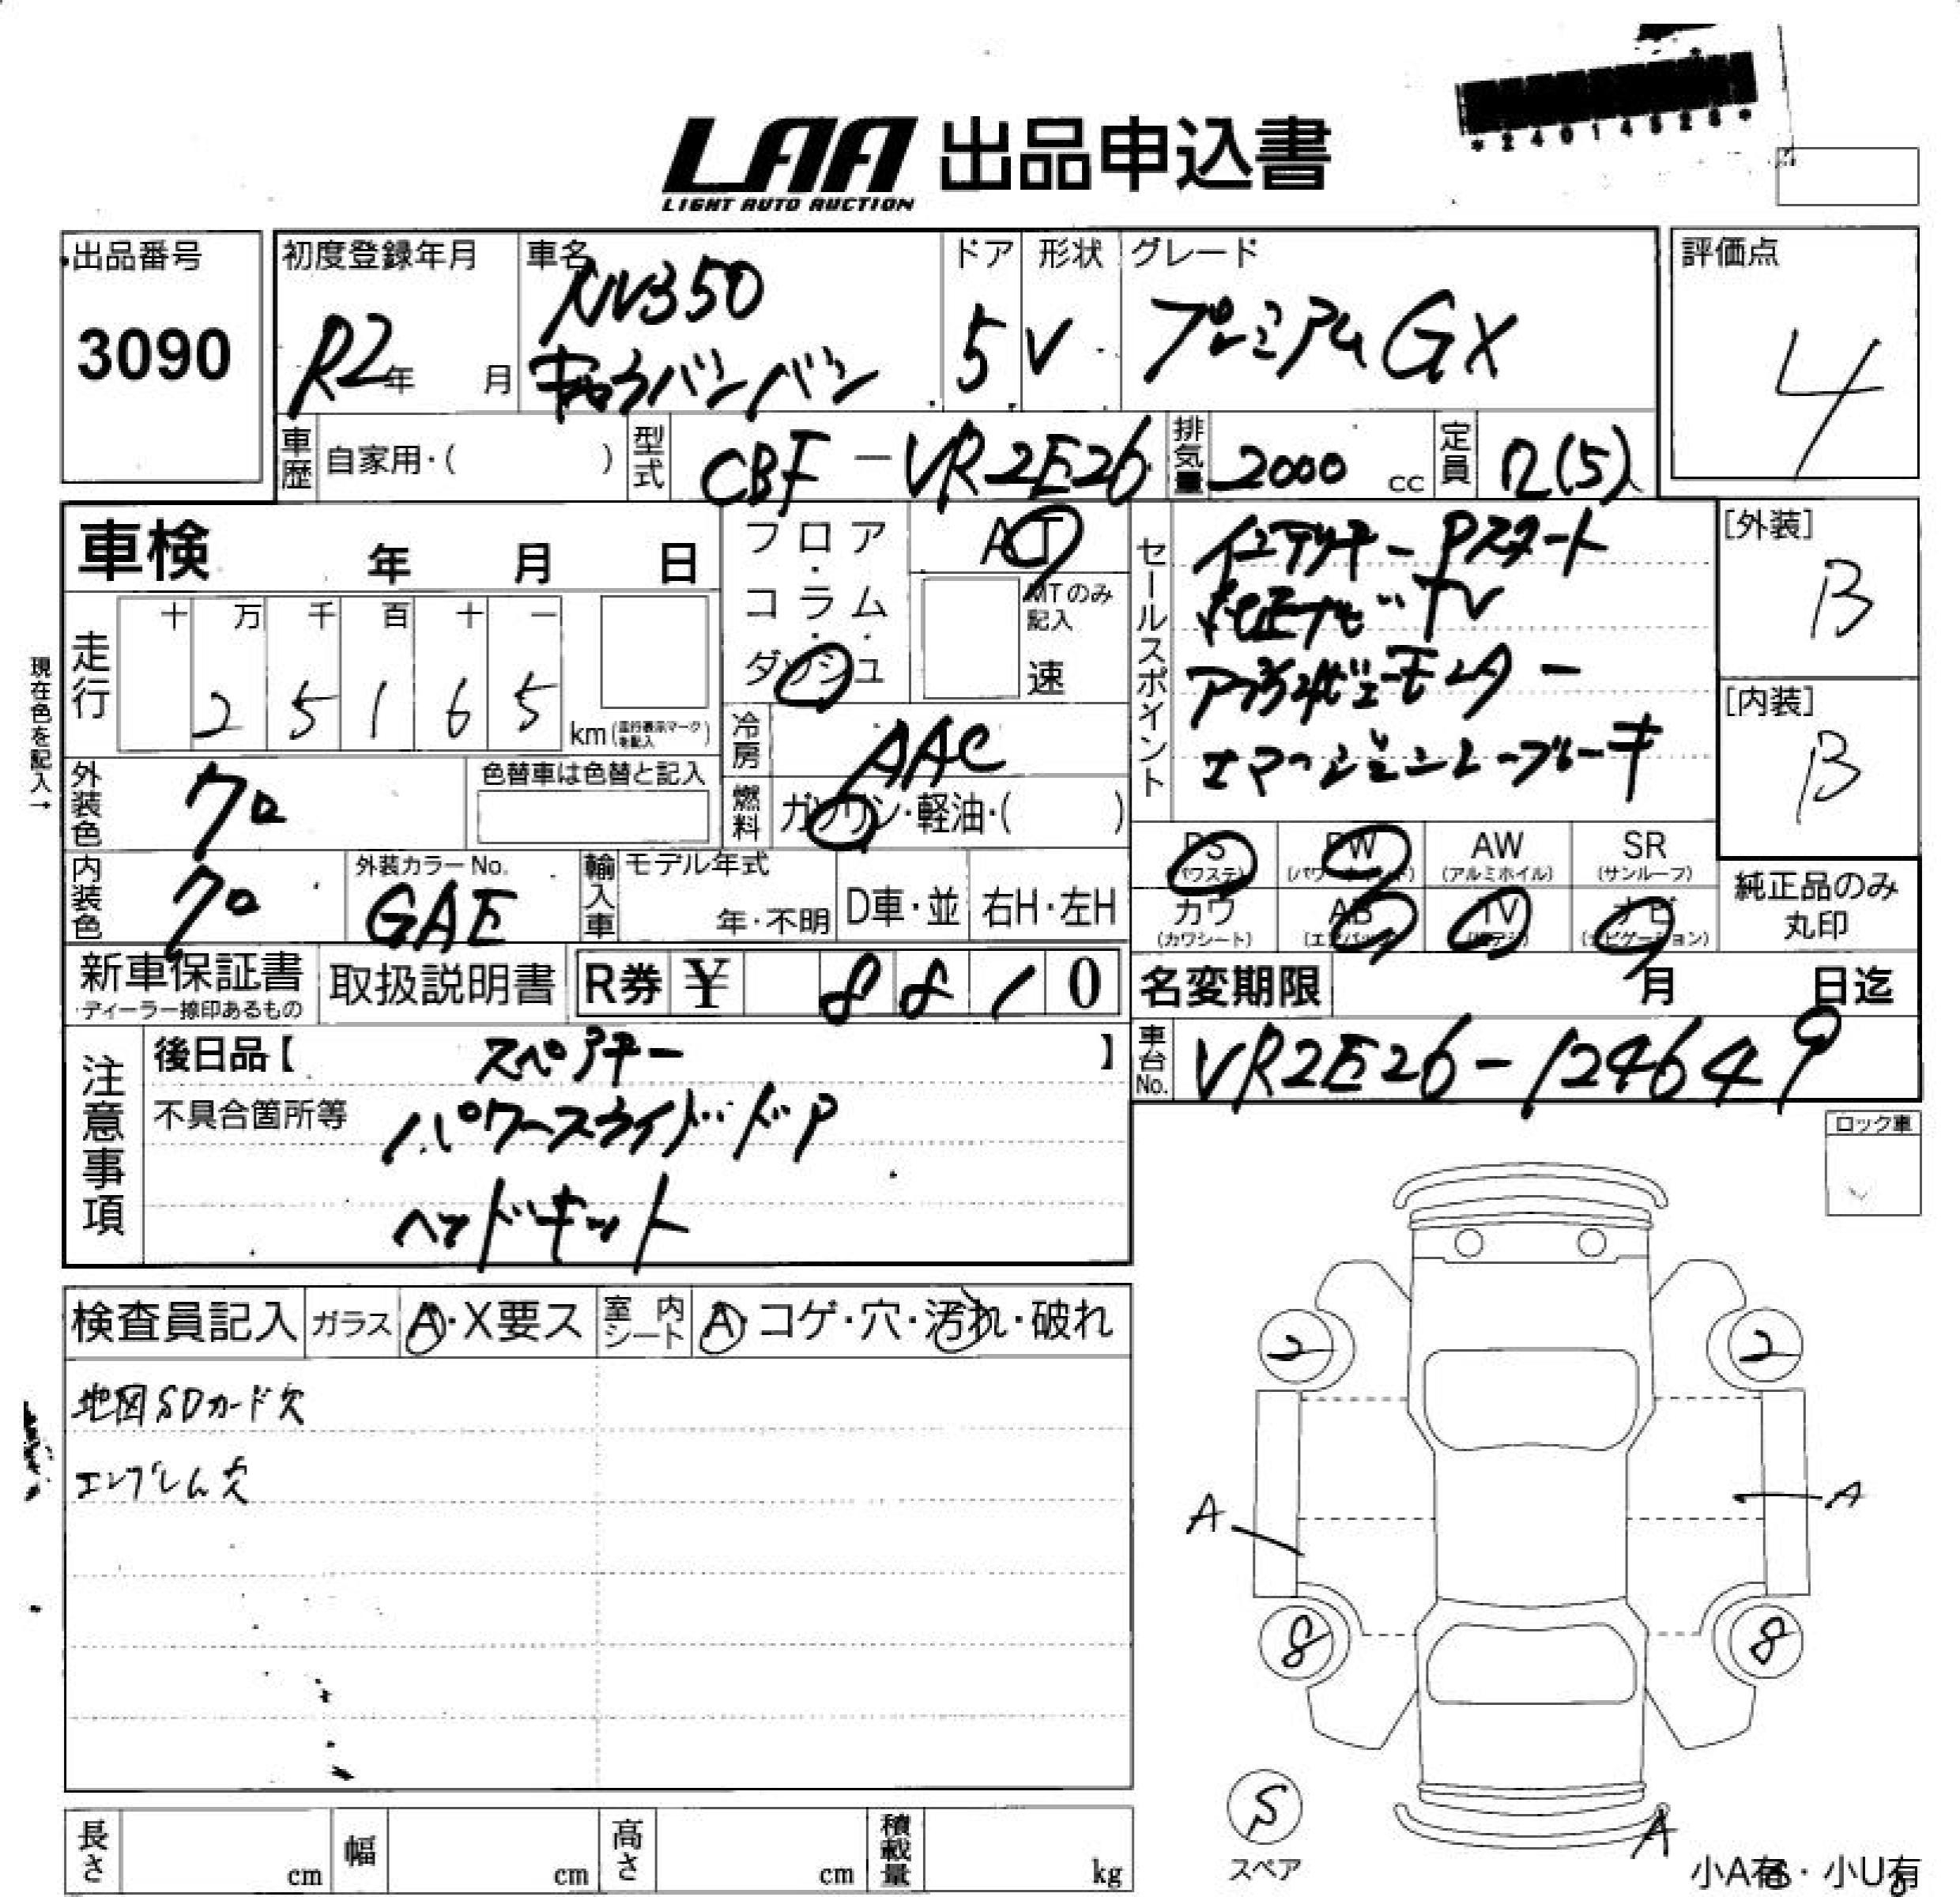 *24014528*
LAA 出品申込書
LIGHT AUTO AUCTION
出品番号
3090
初度登録年月
R2年 月
車名
NV350
キャラバンバン
ドア
5
形状
V
グレード
プレミアムGX
評価点
4
車歴 自家用・( )
型式 CBF-VR2E26
排気量 2000 cc
定員 2(5)人
車検 年 月 日
フロア・コラム・ダッシュ
AT
MTのみ記入
速
セールスポイント
インテリキー Pスタート
純正ナビ・TV
アラウンドビューモニター
エマージェンシーブレーキ
[外装]
B
[内装]
B
現在色を記入→
走行
十 万 千 百 十 一
2 5 1 6 5
km(走行表示マークを記入)
冷房 AAC
燃料 ガソリン・軽油・( )
外装色 クロ
色替車は色替と記入
内装色 クロ
外装カラーNo.
GAE
輸入車
モデル年式
年・不明
D車・並
右H・左H
PS (パワステ)
PW (パワーウインド)
AW (アルミホイル)
SR (サンルーフ)
カワ (カワシート)
AB (エアバッグ)
TV (テレビ)
ナビ (ナビゲーション)
純正品のみ丸印
新車保証書
ディーラー捺印あるもの
取扱説明書
R券 ¥ 8 8 1 0
名変期限 月 日迄
車台No. VR2E26-124649
注意事項
後日品【 スペアキー 】
不具合箇所等 パワースライドドア
ヘッドキット
ロック車
検査員記入 ガラス A・X要ス 室内シート A・コゲ・穴・汚れ・破れ
地図SDカード欠
エンブレム欠
2 2
A A
8 8
S
スペア
A
小A有・小U有
長さ cm 幅 cm 高さ cm 積載量 kg